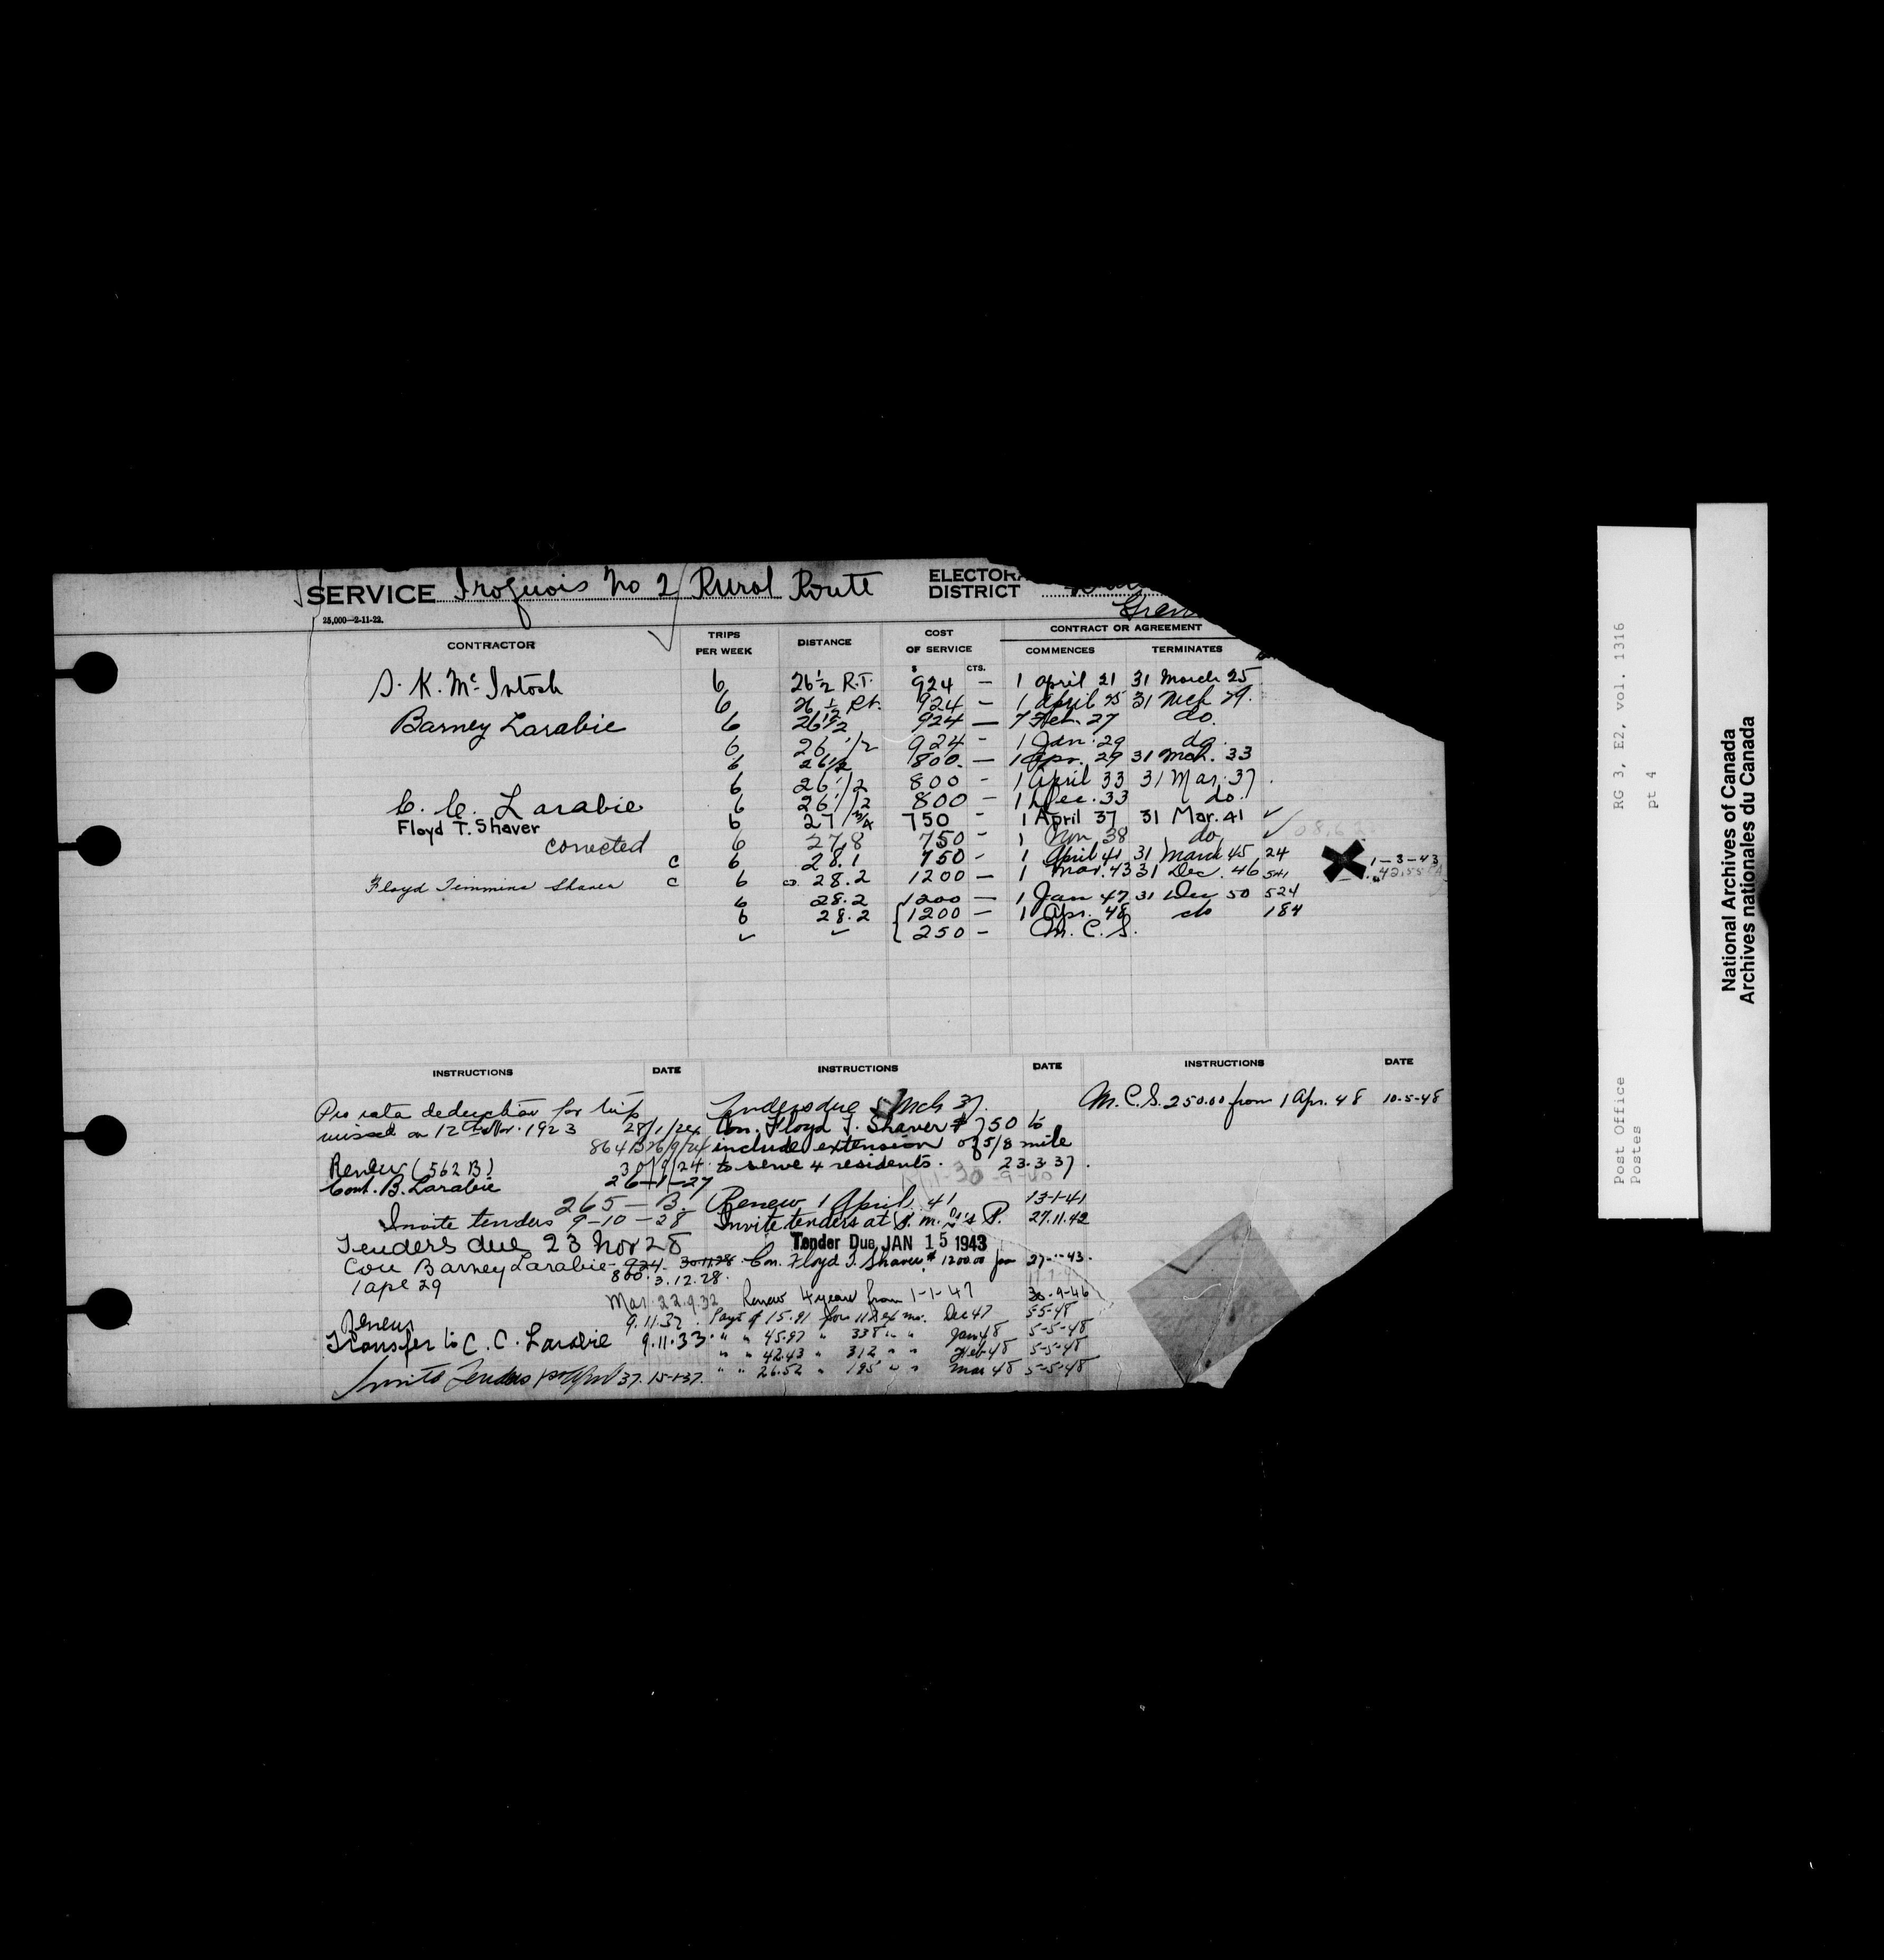 SERVICE Iroquois No 2 Rural Route ELECTORA
DISTRICT
Gren
25,000—2-11-22.
CONTRACTOR TRIPS PER WEEK DISTANCE COST OF SERVICE CONTRACT OR AGREEMENT
COMMENCES TERMINATES
$ CTS.
S. K. McIntosh 6 26 1/2 R.T. 924 — 1 April 21 31 March 25
6 26 1/2 Rt. 924 — 1 April 25 31 Mch 29.
Barney Larabie 6 26 1/2 924 — 7 Feb. 27 do.
6 26 1/2 924 — 1 Jan. 29 do.
6 26 1/2 800. — 1 Apr. 29 31 Mch. 33
6 26 1/2 800 — 1 April 33 31 Mar. 37.
C. C. Larabie 6 26 1/2 800 — 1 Dec. 33 do.
Floyd T. Shaver 6 27 3/4 750 — 1 April 37 31 Mar. 41 ✓
corrected 6 27.8 750 — 1 Nov. 38 do ✓
c 6 28.1 750 — 1 April 41 31 March 45 24
Floyd Timmins Shaver c 6 28.2 1200 — 1 Mar. 43 31 Dec. 46 541
1-3-43
6 28.2 1200 — 1 Jan 47 31 Dec 50 524
6 28.2 1200 — 1 Apr. 48 do 184
✓ ✓ 250 — M. C. S.
INSTRUCTIONS DATE INSTRUCTIONS DATE INSTRUCTIONS DATE
Pro rata deduction for trip
missed on 12th Nov. 1923 28/1/24
864 B 26/9/24
Renew (562 B) 30/9/24
Cont. B. Larabie 26-1-27
265 — B.
Invite tenders 9-10-28
Tenders due 23 Nov 28
Con Barney Larabie - 924. 30.11.28.
800. 3.12.28.
1 Apl 29
Mar. 22.9.32
Renew 9.11.32.
Transfer to C. C. Larabie 9.11.33
Invite Tenders 1st April 37. 15-1-37.
Tenders due 5 Mch 37.
Con. Floyd T. Shaver $750 to
include extension of 5/8 mile
to serve 4 residents. 23.3.37.
30-9-40
Renew 1 April. 41 13-1-41
Invite tenders at P. M. G's P. 27.11.42
Tender Due JAN 15 1943
Con. Floyd T. Shaver $1200.00 from 27-1-43.
Renew 4 years from 1-1-47 30-9-46
Payt of 15.91 for 112 ex mi. Dec 47 5-5-48
" " 45.97 " 338 " " Jan 48 5-5-48
" " 42.43 " 312 " " Feb 48 5-5-48
" " 26.52 " 195 " " Mar 48 5-5-48
M. C. S. 250.00 from 1 Apr. 48 10-5-48
Post Office RG 3, E2, vol. 1316
Postes pt 4
National Archives of Canada
Archives nationales du Canada